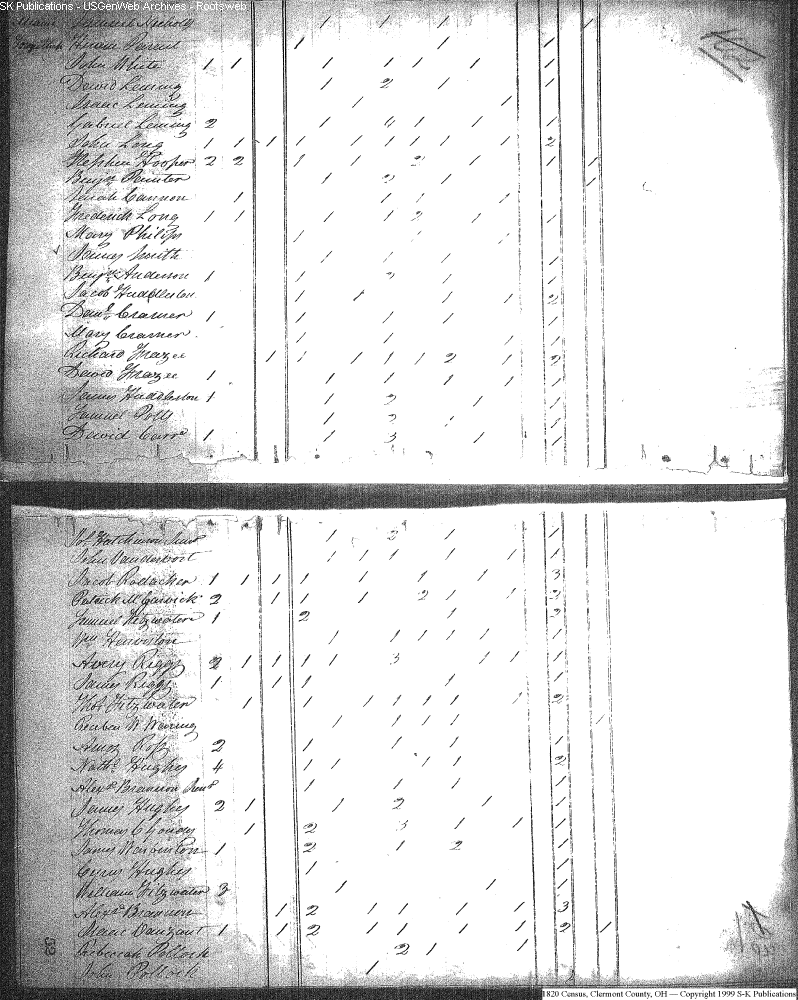 SK Publications - USGenWeb Archives - Rootsweb
1 1 1 1
Hiram 1 1 1
John White 1 1 1 1 1 1
David Leming 1 2 1 1
Isaac Leming 1 1
Gabriel Leming 2 1 4 1 1 1
John Long 1 1 1 1 1 1 1 1 1 2
Stephen Hooper 2 2 1 1 2 1 1 1
Benjn Painter 1 2 1 1
Sarah Cannon 1 1 1 1
Frederick Long 1 1 1 1 2 1 1
Mary Philips 1 1
James Smith 1 1 1 1
Benjn Anderson 1 1 2 1 1
Jacob Huddleston 1 1 1 1 2
Danl Cramer 1 1 1 1 1
Mary Cramer 1 1 1
Richard Frazee 1 1 1 1 1 2 1 2
David Frazee 1 1 1 1 1 1
James Huddleston 1 1 2 1 1
Samuel 1 2 1 1
David Carr 1 1 3 1 1
Hutchinson 1 2 1 1
John Vanderbort 1 1 1 1 1 1
Jacob Rodacher 1 1 1 1 1 1 1 3
Patrick McGarvick 2 1 1 1 2 1 1 2
Samuel Fitzwater 1 2 1 2
Wm 1 1 1 1 1 1
Avery Riggs 2 1 1 1 1 3 1 1 1
James Riggs 1 1 1 1 1
Thos Fitzwater 1 1 1 1 1 1 1 2
Reuben W Waring 1 1 1 1
Amos Ross 2 1 1 1 1
Nathl Hughes 4 1 1 1 1 2
Alexr Brannon Junr 1 1 1 1
James Hughes 2 1 1 2 1 1
Thomas 1 2 3 1 1 1
James 1 2 1 2 1
Cyrus Hughes 1 1
William Fitzwater 3 1 1 1
Alexr Brannon 1 2 1 1 1 1 3
Isaac Vanzant 1 1 2 1 1 1 1 2 1
Rebecah Pollock 2 1 1
John Pollock 1
1820 Census, Clermont County, OH — Copyright 1999 S-K Publications